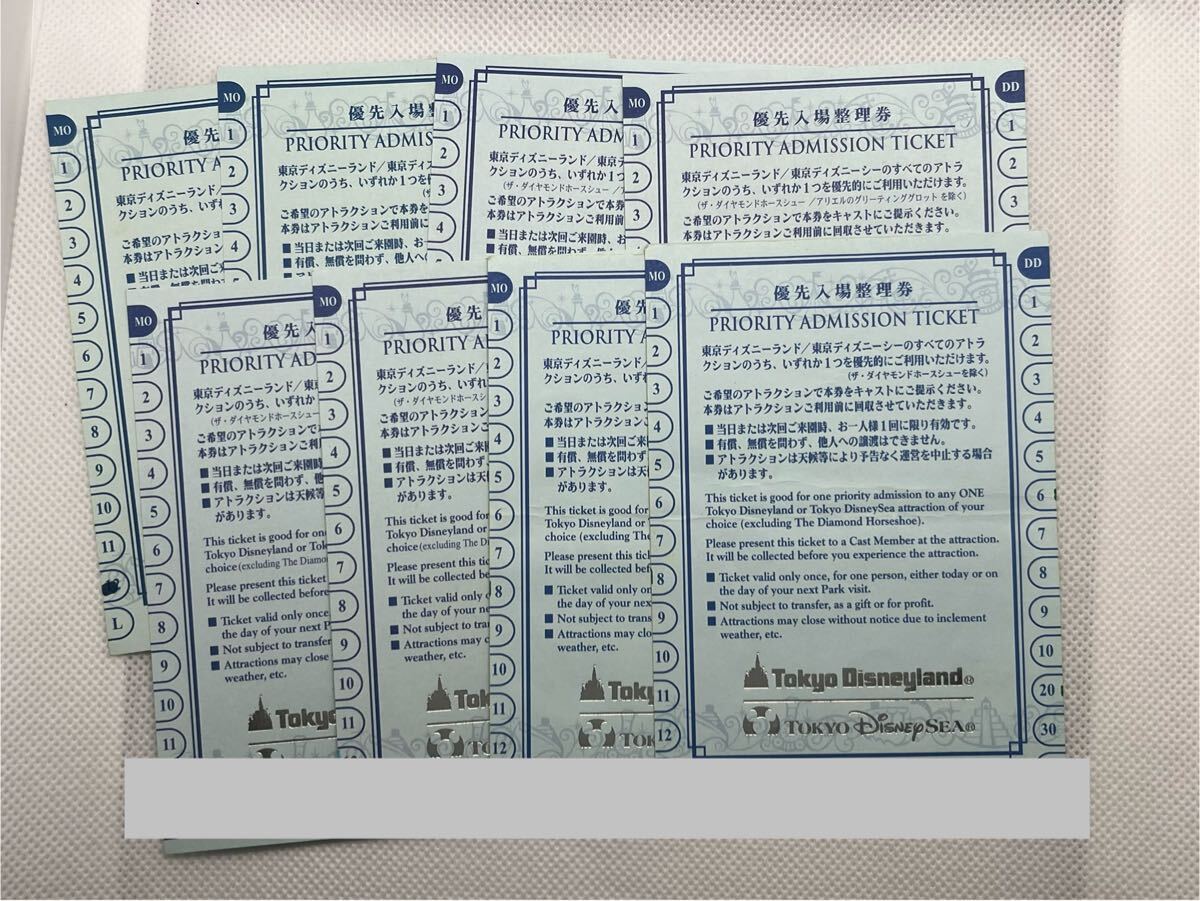 MO
優先
PRIORITY A
東京ディズニーランド
クションのうち、いずれ
ご希望のアトラクショ
本券はアトラクション
■ 当日または次回ご
1
2
3
4
5
6
7
8
9
10
11
L
MO
優先入場
PRIORITY ADMIS
東京ディズニーランド／東京ディズ
クションのうち、いずれか1つを
ご希望のアトラクションで本券を
本券はアトラクションご利用前に
■ 当日または次回ご来園時、お
■ 有償、無償を問わず、他人へ
1
2
3
4
MO
優先入
PRIORITY ADM
東京ディズニーランド／東京デ
クションのうち、いずれか1つ
(ザ・ダイヤモンドホースシュー／
ご希望のアトラクションで本券
本券はアトラクションご利用前
■ 当日または次回ご来園時、お
■ 有償、無償を問わず、他
1
2
3
4
MO
DD
優先入場整理券
PRIORITY ADMISSION TICKET
東京ディズニーランド／東京ディズニーシーのすべてのアトラ
クションのうち、いずれか1つを優先的にご利用いただけます。
(ザ・ダイヤモンドホースシュー／アリエルのグリーティンググロットを除く)
ご希望のアトラクションで本券をキャストにご提示ください。
本券はアトラクションご利用前に回収させていただきます。
1
2
3
1
2
3
MO
優先入
PRIORITY AD
東京ディズニーランド／東
クションのうち、いずれか
(ザ・ダイヤモンドホースシュー
ご希望のアトラクションで
本券はアトラクションご利
■ 当日または次回ご来園時
■ 有償、無償を問わず、他
■ アトラクションは天候等
があります。
This ticket is good for on
Tokyo Disneyland or Tok
choice (excluding The Diamo
Please present this ticket
It will be collected before
■ Ticket valid only once
the day of your next P
■ Not subject to transfer
■ Attractions may close
weather, etc.
Tokyo
1
2
3
4
5
6
7
8
9
10
11
MO
優先
PRIORITY A
東京ディズニーランド
クションのうち、いずれ
(ザ・ダイヤモンドホースシ
ご希望のアトラクション
本券はアトラクションご
■ 当日または次回ご来
■ 有償、無償を問わず、
■ アトラクションは天
があります。
This ticket is good for
Tokyo Disneyland or
choice (excluding The D
Please present this tic
It will be collected be
■ Ticket valid only o
the day of your ne
■ Not subject to tra
■ Attractions may c
weather, etc.
Tok
TO
1
2
3
4
5
6
7
8
9
10
11
MO
優先
PRIORITY A
東京ディズニーランド
クションのうち、いずれ
ご希望のアトラクショ
本券はアトラクション
■ 当日または次回ご
■ 有償、無償を問わ
■ アトラクションは
があります。
This ticket is good for
Tokyo Disneyland or
choice (excluding The
Please present this tick
It will be collected bef
■ Ticket valid only or
the day of your nex
■ Not subject to tran
■ Attractions may clo
weather, etc.
Toky
TOK
1
2
3
4
5
6
7
8
9
10
11
12
MO
DD
優先入場整理券
PRIORITY ADMISSION TICKET
東京ディズニーランド／東京ディズニーシーのすべてのアトラ
クションのうち、いずれか1つを優先的にご利用いただけます。
(ザ・ダイヤモンドホースシューを除く)
ご希望のアトラクションで本券をキャストにご提示ください。
本券はアトラクションご利用前に回収させていただきます。
■ 当日または次回ご来園時、お一人様1回に限り有効です。
■ 有償、無償を問わず、他人への譲渡はできません。
■ アトラクションは天候等により予告なく運営を中止する場合
があります。
This ticket is good for one priority admission to any ONE
Tokyo Disneyland or Tokyo DisneySea attraction of your
choice (excluding The Diamond Horseshoe).
Please present this ticket to a Cast Member at the attraction.
It will be collected before you experience the attraction.
■ Ticket valid only once, for one person, either today or on
the day of your next Park visit.
■ Not subject to transfer, as a gift or for profit.
■ Attractions may close without notice due to inclement
weather, etc.
Tokyo Disneyland®
TOKYO DISNEYSEA®
1
2
3
4
5
6
7
8
9
10
11
12
1
2
3
4
5
6
7
8
9
10
20
30